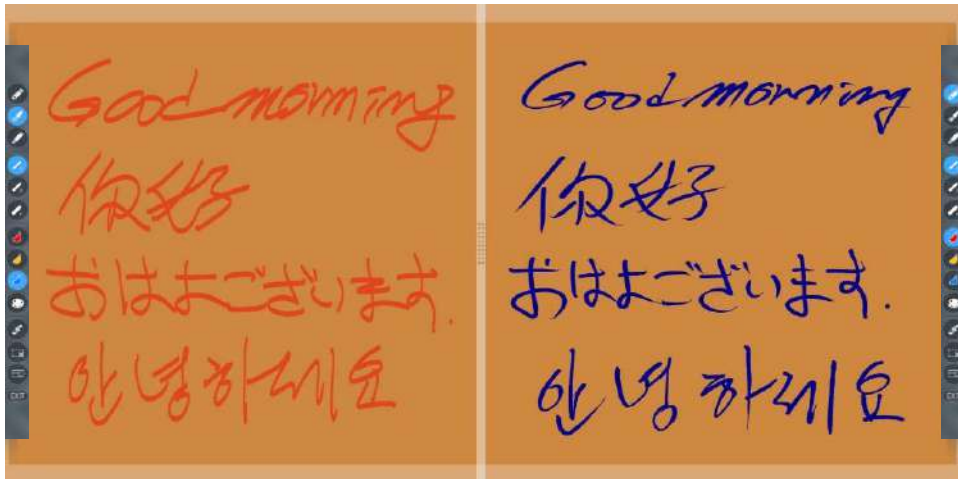 Good morning
你好
おはよございます.
안녕하세요
Good morning
你好
おはよございます.
안녕하세요
EXIT
EXIT